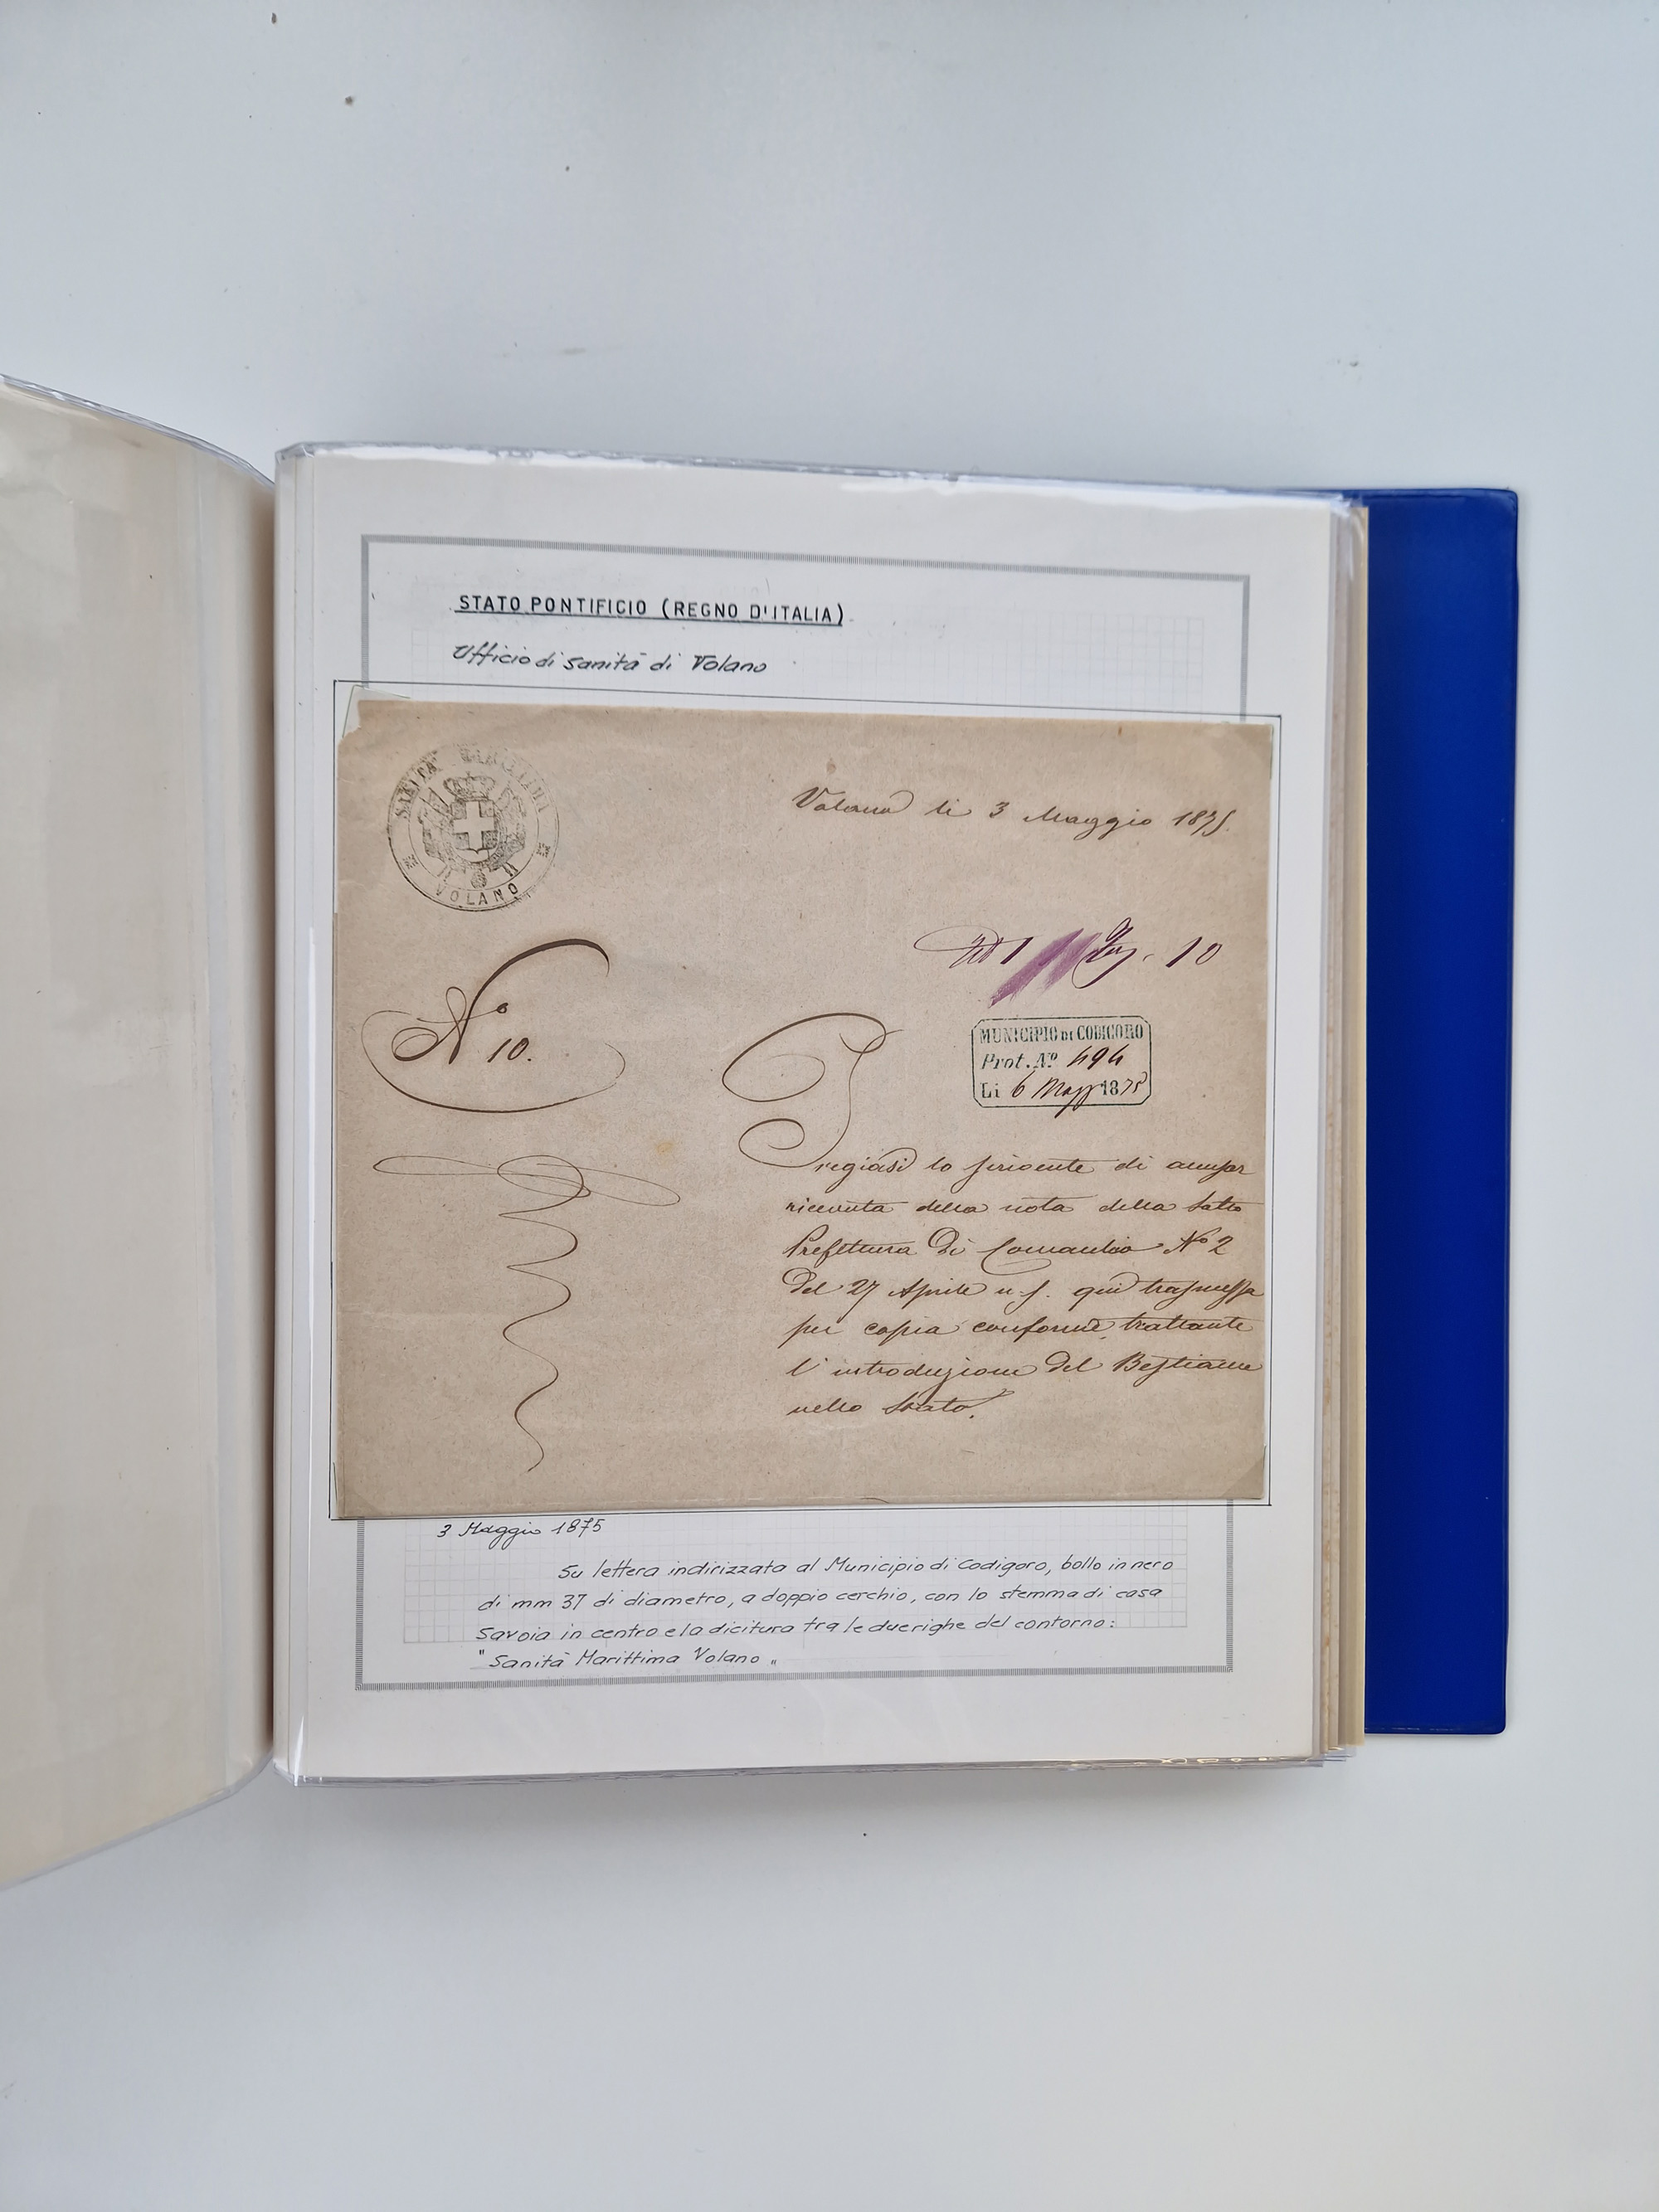 STATO PONTIFICIO (REGNO D'ITALIA)
Ufficio di Sanità di Volano
SANITA' MARITTIMA
VOLANO
Volano li 3 Maggio 1875.
10
N° 10.
MUNICIPIO DI CODIGORO
Prot. N° 494
Li 6 Magg 1875
Pregiasi lo scrivente di accusar
ricevuta della nota della Sotto
Prefettura Di Comacchio N° 2
Del 27 Aprile u.s. qui trasmessa
per copia conforme, trattante
l'introduzione Del Bestiame
nello Stato.
3 Maggio 1875
Su lettera indirizzata al Municipio di Codigoro, bollo in nero
di mm 37 di diametro, a doppio cerchio, con lo stemma di casa
Savoia in centro e la dicitura tra le due righe del contorno:
"Sanità Marittima Volano"